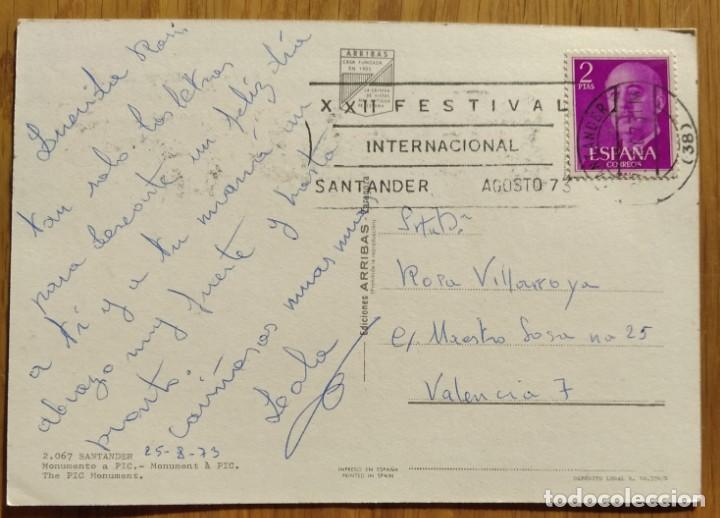 Querida Rosi
tan solo dos letras
para desearte un feliz día
a tí y a tu mamá un
abrazo muy fuerte y hasta
pronto.
cariñosas
Lola
25-8-73
2.067 SANTANDER
Monumento a PIC.- Monument à PIC.
The PIC Monument.
ARRIBAS
CASA FUNDADA
EN 1905
Ediciones ARRIBAS - Zaragoza
IMPRESO EN ESPAÑA
PRINTED IN SPAIN
XXII FESTIVAL
INTERNACIONAL
SANTANDER AGOSTO 73
SANTANDER
(38)
2
PTAS
ESPAÑA
CORREOS
Srta. Dª
Rosa Villarroya
c/ Maestro Sosa no 25
Valencia 7
DEPÓSITO LEGAL
todocoleccion
todocoleccion.net